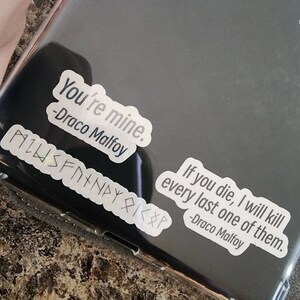 You're mine.
-Draco Malfoy
If you die, I will kill
every last one of them.
-Draco Malfoy